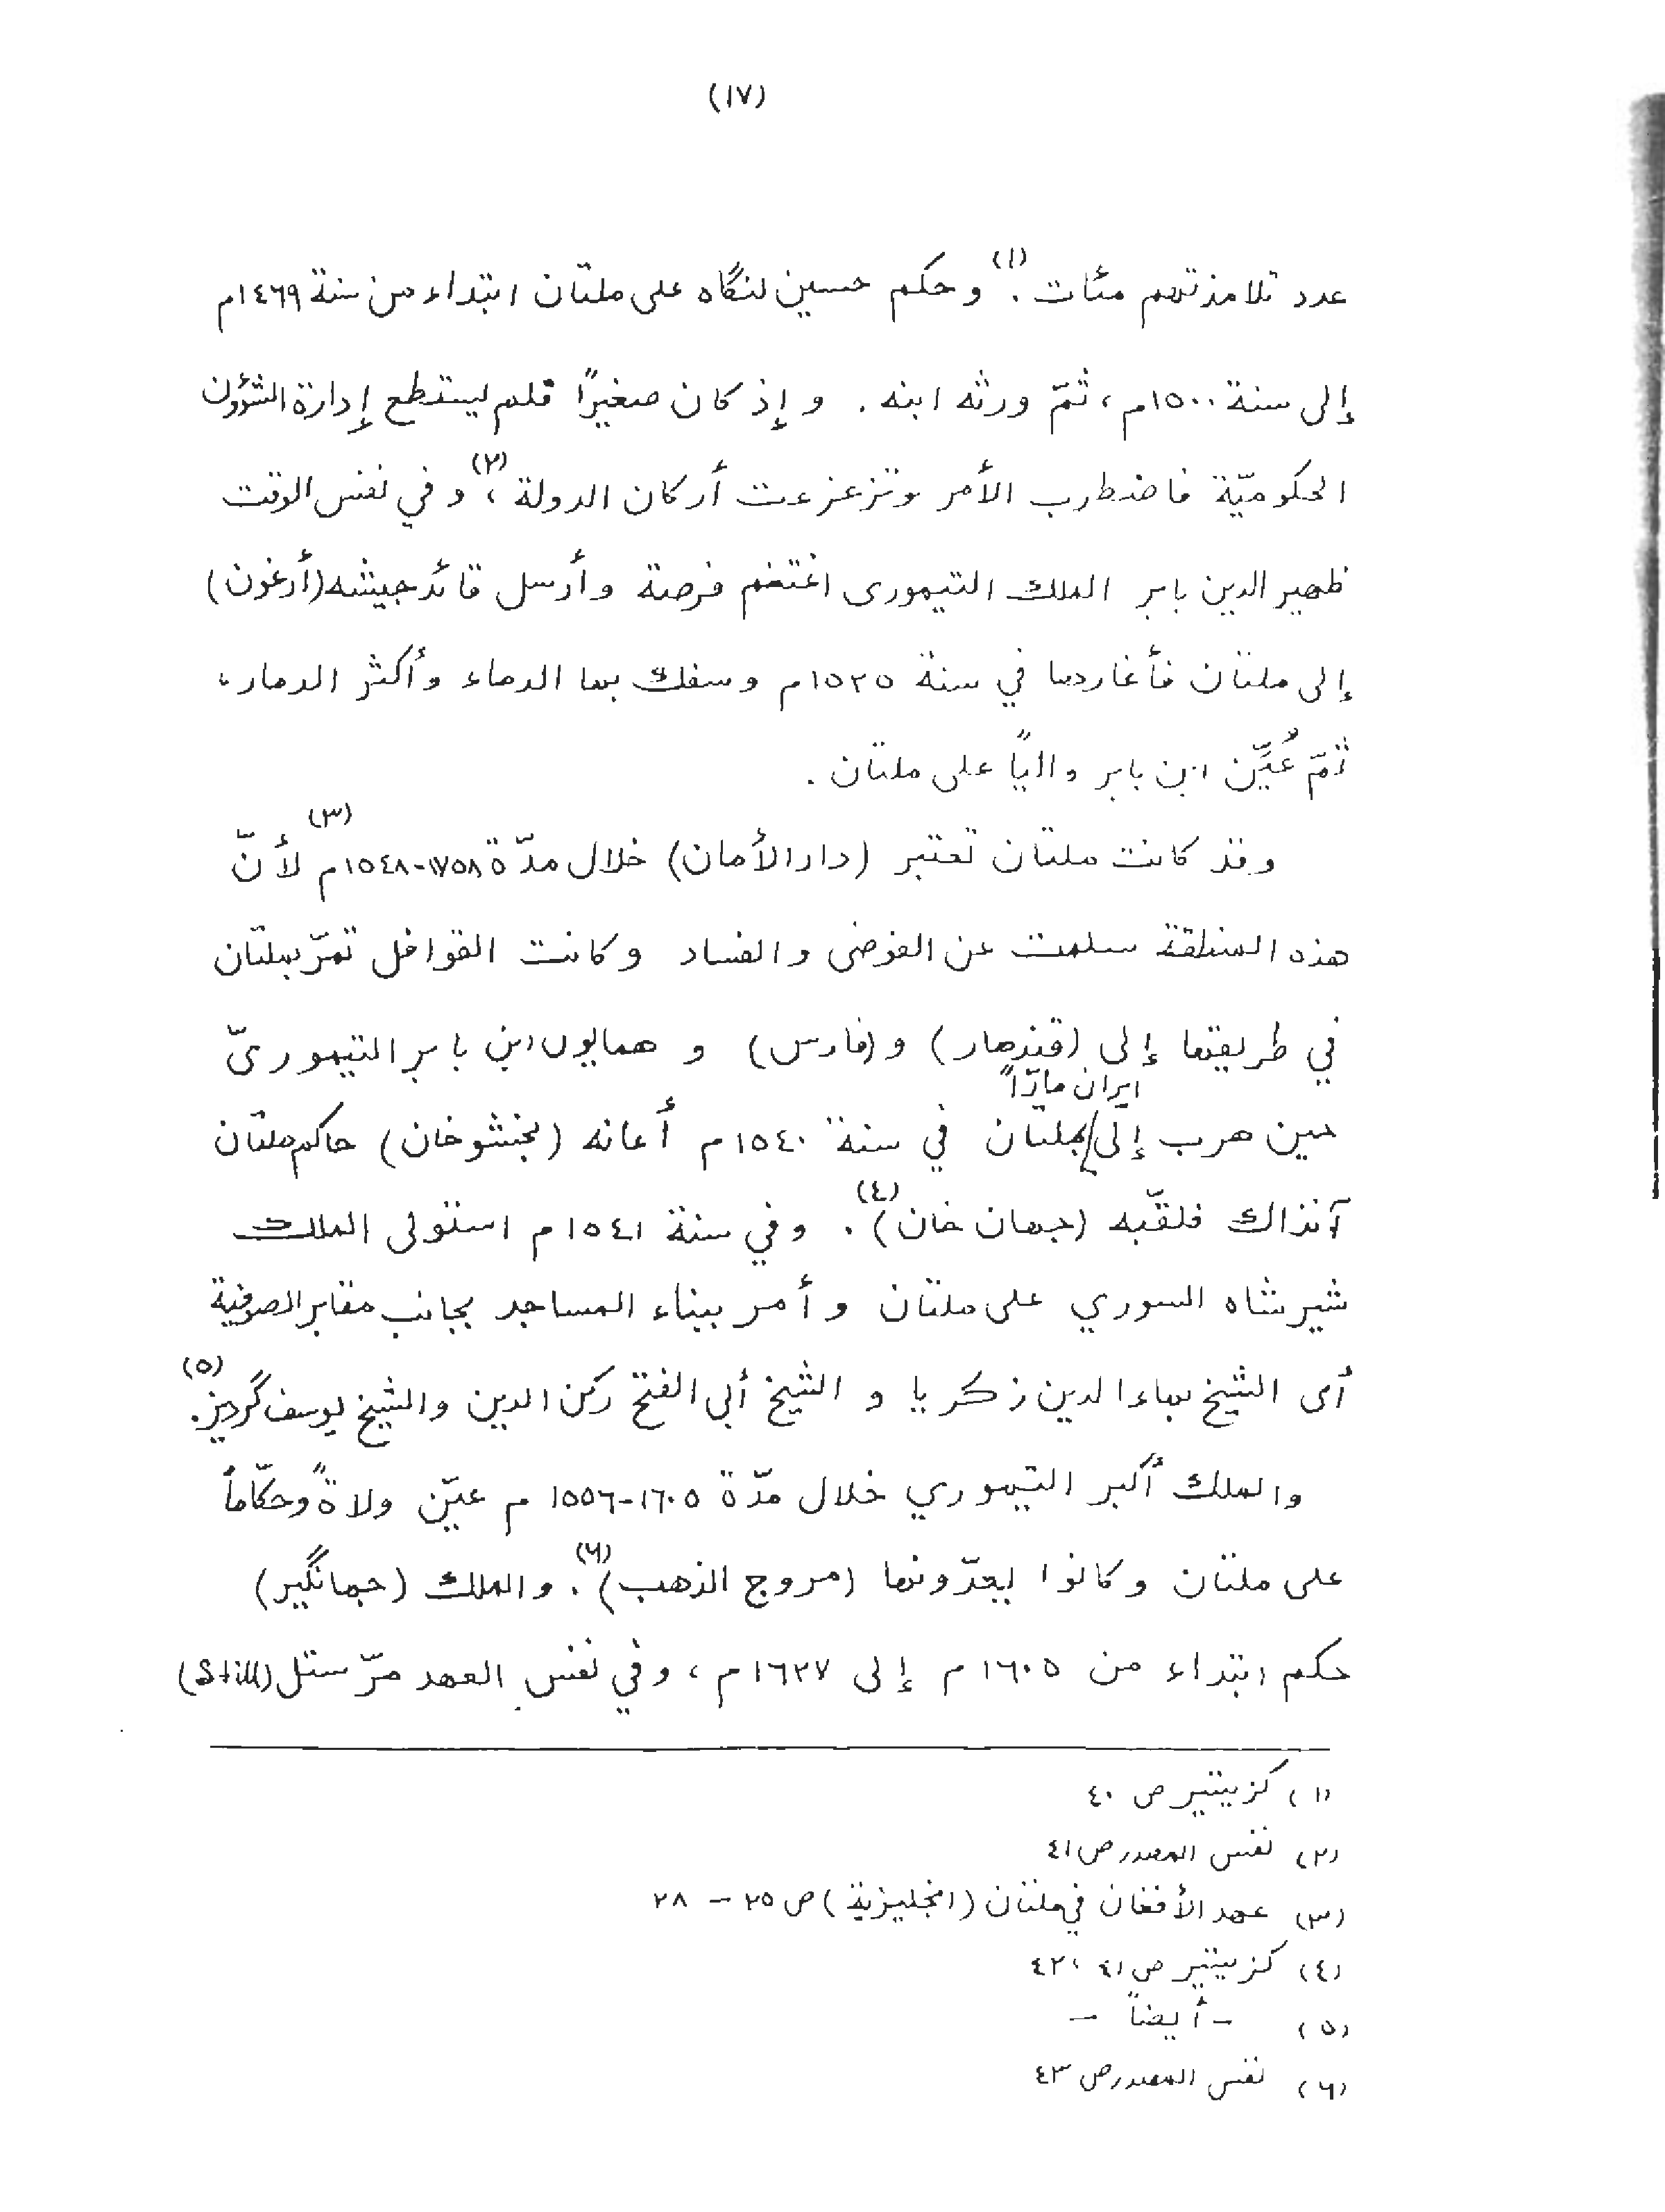 (١٧)
عدد تلامذتهم مئات.(١) وحكم حسين لنگاه على ملتان ابتداء من سنة ١٤٦٩م
إلى سنة ١٥٠٠م، ثمّ ورثه ابنه. وإذ كان صغيرًا فلم يستطع إدارة الشؤون
الحكوميّة فاضطرب الأمر وتزعزعت أركان الدولة،(٢) وفي نفس الوقت
ظهير الدين بابر الملك التيمورى اغتنم فرصة وأرسل قائد جيشه (أرغون)
إلى ملتان فأغار دها في سنة ١٥٢٥م وسفك بها الدماء وأكثر الدمار،
ثمّ عُيِّن ابن بابر واليًا على ملتان.
وقد كانت ملتان تعتبر (دار الأمان) خلال مدّة ١٧٥٨-١٥٤٨م(٣) لأنّ
هذه المنطقة سلمت عن الفوضى والفساد وكانت القوافل تمرّ بملتان
في طريقها إلى (قندهار) و(فارس) و همايون ابن بابر التيموريّ
ايران مارًّا
حين هرب إلى بملتان في سنة ١٥٤٠م أعانه (بخشو خان) حاكم ملتان
آنذاك فلقّبه (جهان خان)(٤). وفي سنة ١٥٤١م استولى الملك
شير شاه السوري على ملتان وأمر ببناء المساجد بجانب مقابر الصوفية
أى الشيخ بهاء الدين زكريا و الشيخ أبى الفتح ركن الدين والشيخ يوسف گرديز.(٥)
والملك أكبر التيموري خلال مدّة ١٦٠٥-١٥٥٦ م عيّن ولاةً وحكّاماً
على ملتان وكانوا يعدّونها (مروج الذهب)(٦). والملك (جهانگير)
حكم ابتداء من ١٦٠٥م إلى ١٦٢٧م، وفي نفس العهد مرّ ستل (Still)
(١) كزيتير ص ٤٠
(٢) نفس المصدر ص ٤١
(٣) عهد الأفغان في ملتان (انجليزية) ص ٢٥ – ٢٨
(٤) كزيتير ص ٤١، ٤٢
(٥) – أيضاً –
(٦) نفس المصدر ص ٤٣